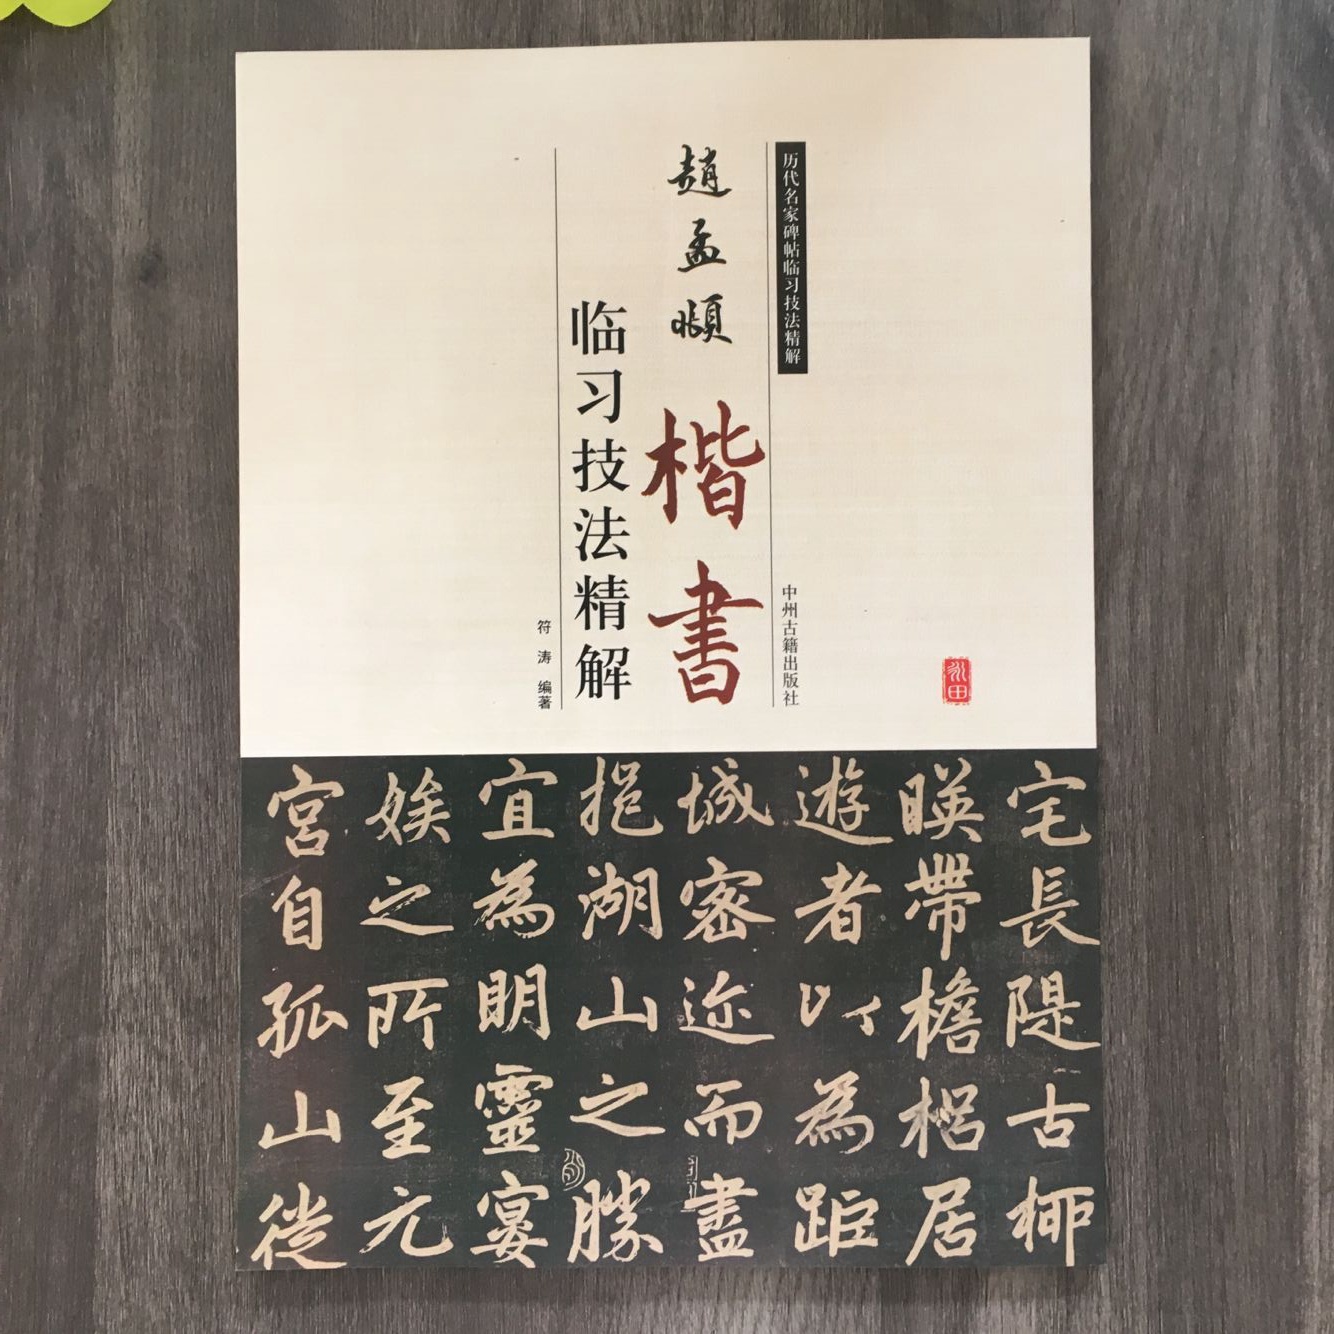 历代名家碑帖临习技法精解
中州古籍出版社
趙孟頫
楷書
临习技法精解
符涛 编著
永田
宅長隄古柳
暎帶檐梠居
遊者以為距
城密迩而盡
挹湖山之勝
宜為明靈宴
娭之所至元
宮自孤山徙